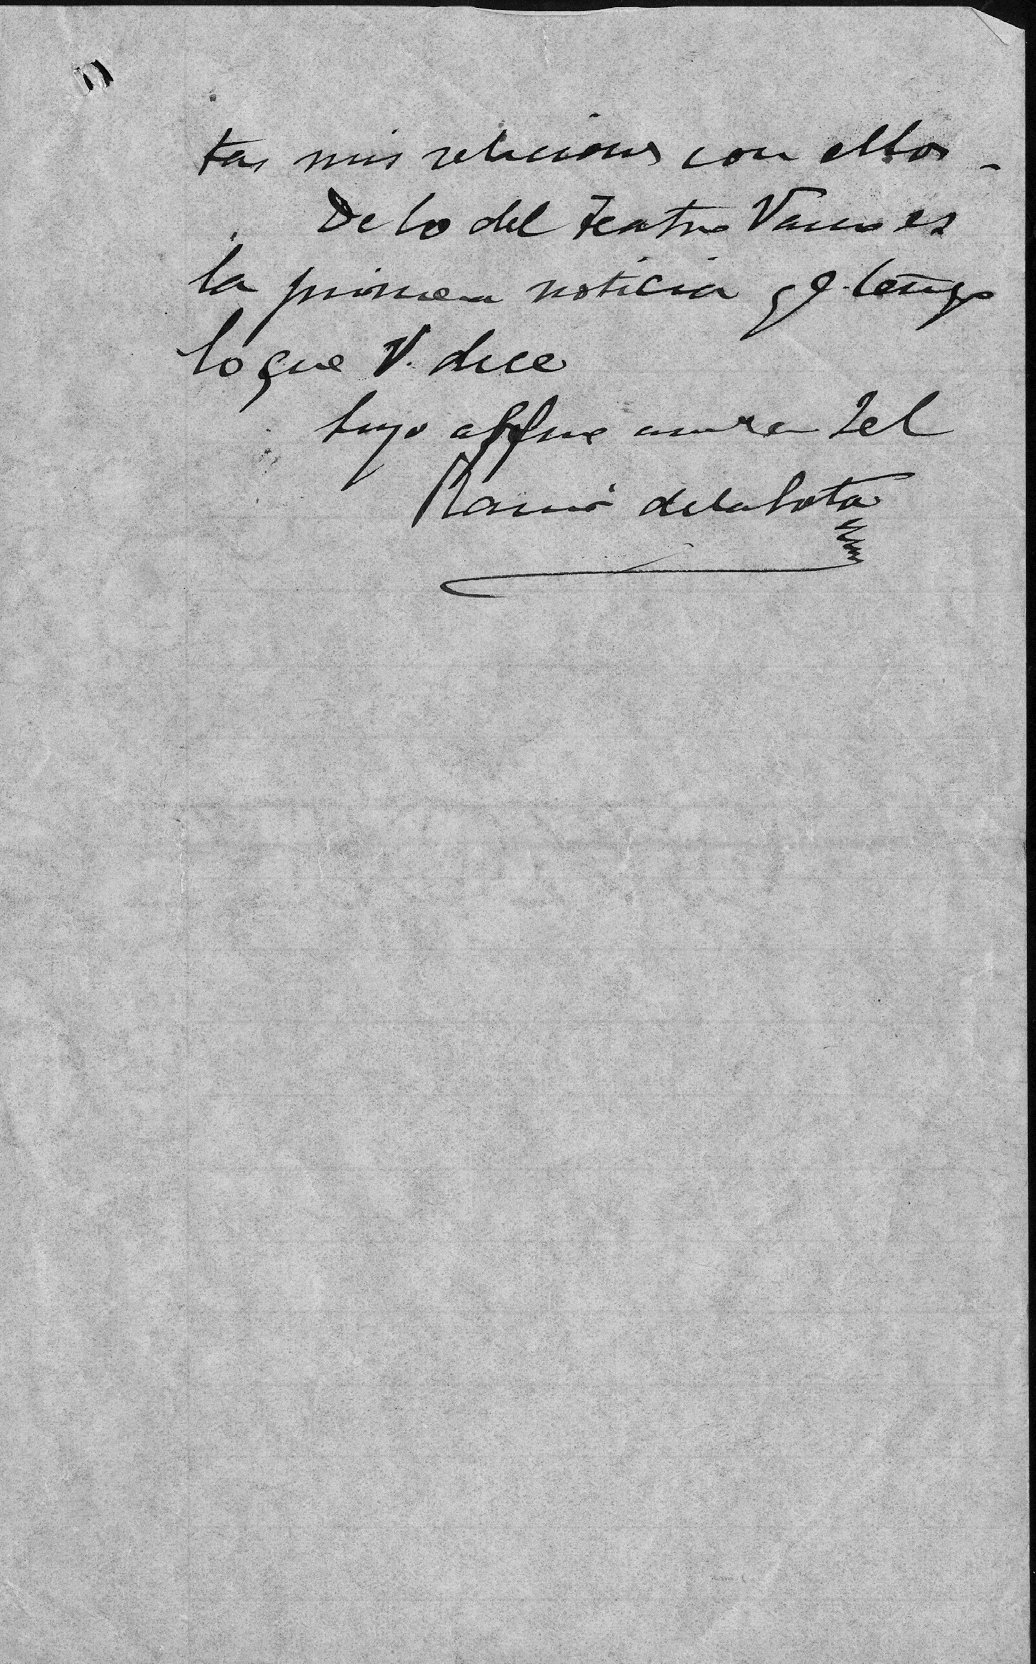 tas mis relaciones con ellos -
De lo del Teatro Vasco es
la primera noticia q. tengo
lo que V. dice
Suyo affmo
Ramón de la Sota